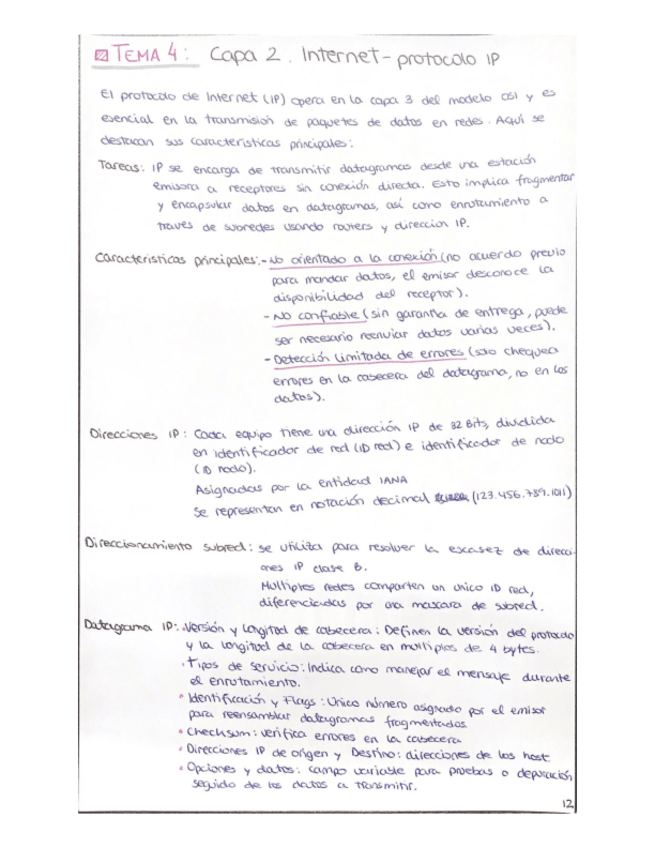 TEMA 4: Capa 2. Internet - protocolo IP
El protocolo de Internet (IP) opera en la capa 3 del modelo OSI y es
esencial en la transmisión de paquetes de datos en redes. Aquí se
destacan sus características principales:
Tareas: IP se encarga de transmitir datagramas desde una estación
emisora a receptores sin conexión directa. Esto implica fragmentar
y encapsular datos en datagramas, así como enrutamiento a
traves de subredes usando routers y direccion IP.
Caracteristicas principales: - No orientado a la conexión (no acuerdo previo
para mandar datos, el emisor desconoce la
disponibilidad del receptor).
- No confiable (sin garantía de entrega, puede
ser necesario reenviar datos varias veces).
- Detección limitada de errores (solo chequea
errores en la cabecera del datagrama, no en los
datos).
Direcciones IP: Cada equipo tiene una dirección IP de 32 Bits, dividida
en identificador de red (ID red) e identificador de nodo
(ID nodo).
Asignadas por la entidad IANA
Se representan en notación decimal (123.456.789.1011)
Direccionamiento subred: se utiliza para resolver la escasez de direcci-
ones IP clase B.
Multiples redes comparten un unico ID red,
diferenciadas por una mascara de subred.
Datagrama IP: · Versión y Longitud de cabecera: Definen la versión del protocolo
y la longitud de la cabecera en multiplos de 4 bytes.
· Tipos de servicio: Indica como manejar el mensaje durante
el enrutamiento.
· Identificación y Flags: Unico número asignado por el emisor
para reensamblar datagramas fragmentados
· Checksum: verifica errores en la cabecera
· Direcciones IP de origen y Destino: direcciones de los host
· Opciones y datos: campo variable para pruebas o depuración
seguido de los datos a transmitir.
12